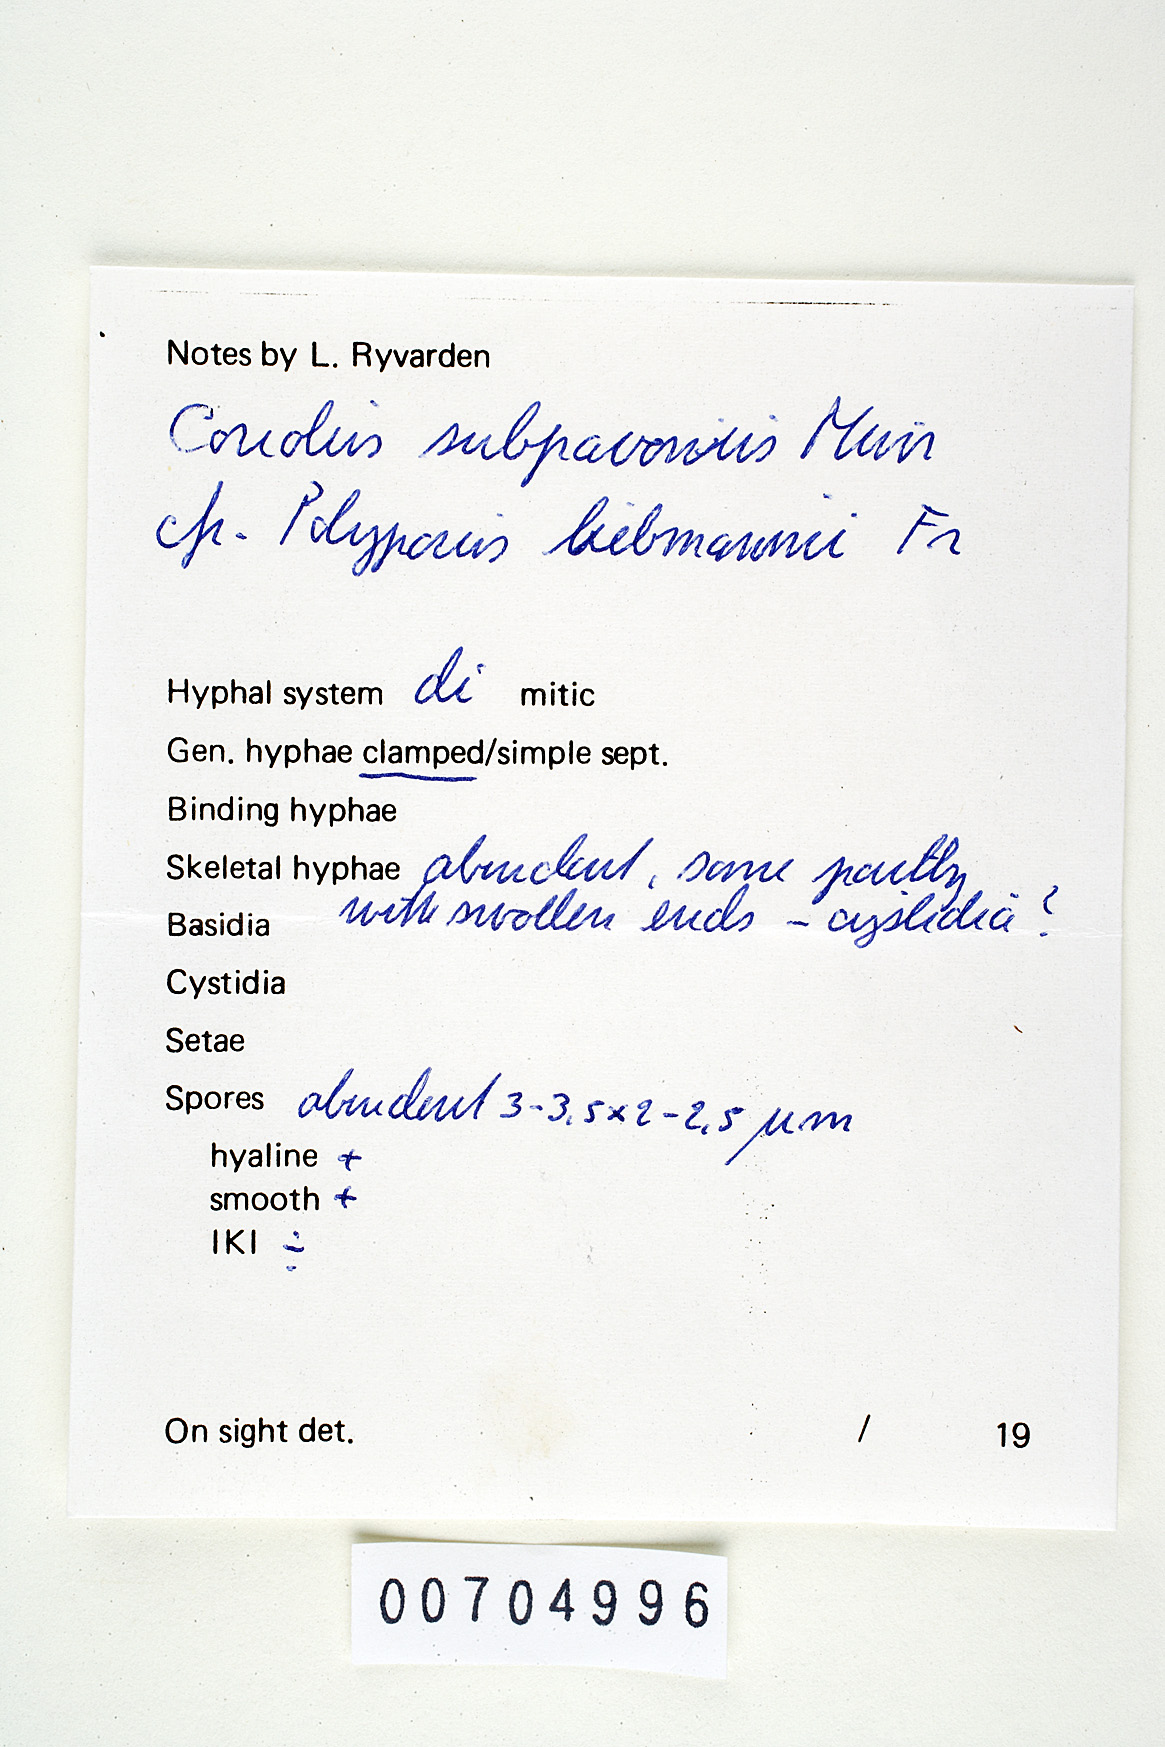 Notes by L. Ryvarden
Coriolus subpavonius Murr
cfr. Polyporus liebmannii Fr
Hyphal system di mitic
Gen. hyphae clamped/simple sept.
Binding hyphae
Skeletal hyphae abundant, some partly
with swollen ends - cystidia?
Basidia
Cystidia
Setae
Spores abundant 3-3,5x2-2,5 µm
hyaline +
smooth +
IKI ÷
On sight det. / 19
00704996